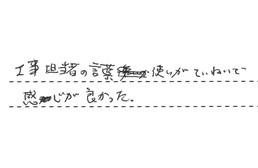 工事担当者の言葉使いがていねいで
感じが良かった。